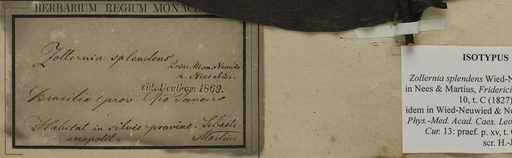 HERBARIUM REGIUM MONAC
Zollernia splendens
Prov. Max. Neuwied
& Nees ab Es.
vid. Bentham 1869.
Brasilia (prov. Rio Janeiro
Habitat in silvis provinc. Sebasti
anopolit.
Martius
ISOTYPUS
Zollernia splendens Wied-N
in Nees & Martius, Friderici
10, t. C (1827)
idem in Wied-Neuwied & Ne
Phys.-Med. Acad. Caes. Leo
Cur. 13: praef. p. xv, t. C
scr. H.-J